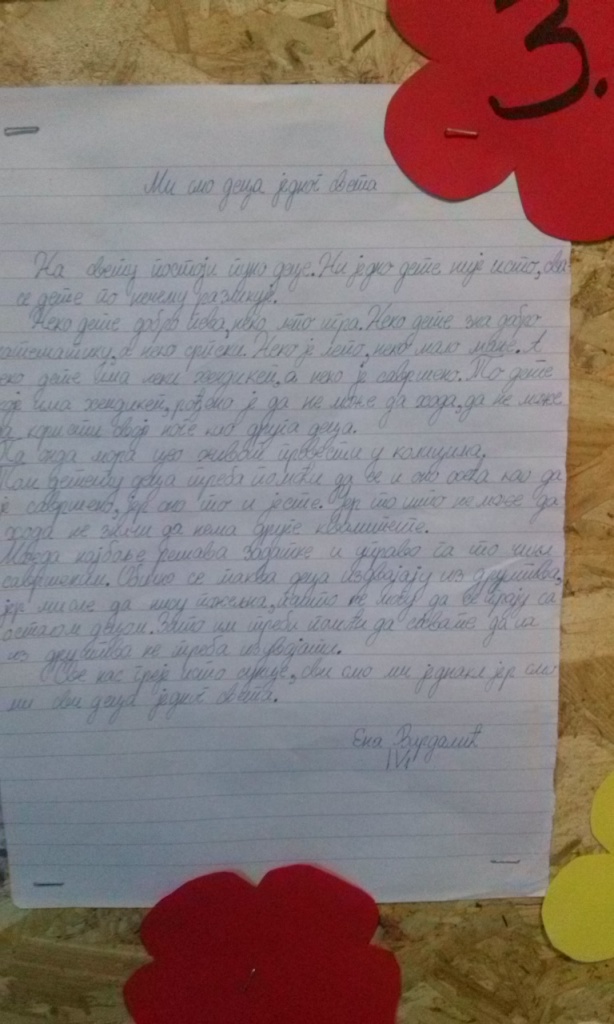 3.
Ми смо деца једног света
На свету постоји пуно деце. Ни једно дете није исто, сва
се дете по нечему разликује.
Неко дете добро пева, неко лепо игра. Неко дете зна добро
математику, а неко српски. Неко је лепо, неко мало мање. А
неко дете има неки хендикеп, а неко је савршено. То дете
које има хендикеп, рођено је да не може да хода, да не може
да користи своје ноге као друга деца.
Па онда мора цео живот провести у колицима.
Том детету деца треба помоћи да се и оно осећа као да
је савршено, јер оно то и јесте. Јер то што не може да
хода не значи да нема друге квалитете.
Можда најбоље решава задатке и управо га то чини
савршеним. Обично се таква деца издвајају из друштва,
јер мисле да нису пожељна, зашто не могу да се играју са
осталом децом. Зато им треба помоћи да схвате да га
из друштва не треба издвојити.
Све нас греје исто сунце, сви смо ми једнаки јер смо
ми сви деца једног света.
Ена
IV1